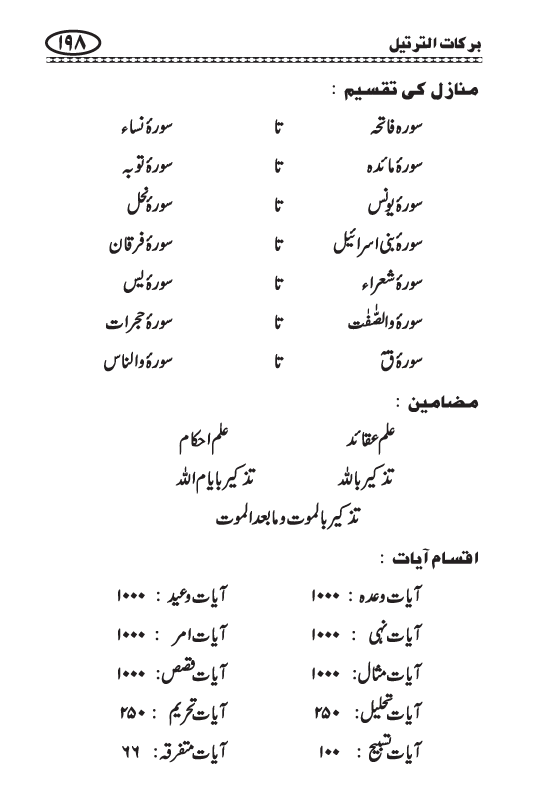 برکات الترتیل ۱۹۸
منازل کی تقسیم :
سورہ فاتحہ تا سورۂ نساء
سورۂ مائدہ تا سورۂ توبہ
سورۂ یونس تا سورۂ نحل
سورۂ بنی اسرائیل تا سورۂ فرقان
سورۂ شعراء تا سورۂ یٰس
سورۂ والصّٰفّٰت تا سورۂ حجرات
سورۂ قٓ تا سورۂ والناس
مضامین :
علم عقائد علم احکام
تذکیر باللہ تذکیر بایام اللہ
تذکیر بالموت وما بعد الموت
اقسام آیات :
آیات وعدہ : ۱۰۰۰ آیات وعید : ۱۰۰۰
آیات نہی : ۱۰۰۰ آیات امر : ۱۰۰۰
آیات مثال: ۱۰۰۰ آیات قصص: ۱۰۰۰
آیات تحلیل: ۲۵۰ آیات تحریم : ۲۵۰
آیات تسبیح : ۱۰۰ آیات متفرقہ: ۶۶